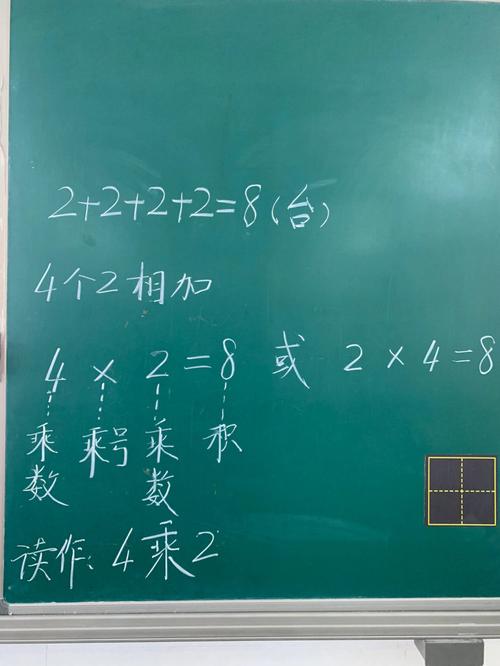 2+2+2+2=8(台)
4个2相加
4×2=8 或 2×4=8
乘数 乘号 乘数 积
读作：4乘2